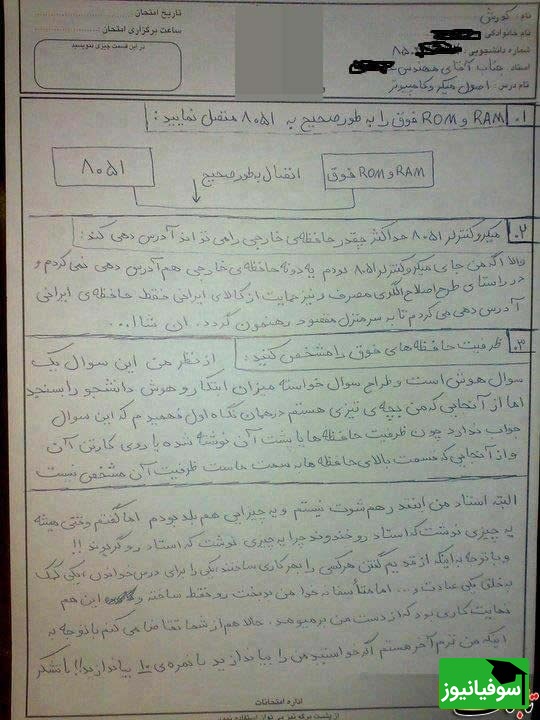 نام: کورش
نام خانوادگی:
شماره دانشجویی: ۸۵۰
استاد: جناب آقای مهندس
نام درس: اصول میکروکامپیوتر
تاریخ امتحان:
ساعت برگزاری امتحان:
در این قسمت چیزی ننویسید
۱. RAM و ROM فوق را به طور صحیح به ۸۰۵۱ متصل نمایید:
RAM و ROM فوق
اتصال به طور صحیح
۸۰۵۱
۲. میکروکنترلر ۸۰۵۱ حداکثر چقدر حافظه‌ی خارجی را می تواند آدرس دهی کند:
والا اگه من جای میکروکنترلر ۸۰۵۱ بودم یه دونه حافظه‌ی خارجی هم آدرس دهی نمی کردم و
در راستای طرح اصلاح الگوی مصرف و نیز حمایت از کالای ایرانی فقط حافظه‌ی ایرانی
آدرس دهی می کردم تا به سر منزل مقصود رهنمون گردد. ان شاا...
۳. ظرفیت حافظه های فوق را مشخص کنید: از نظر من این سوال یک
سوال هوش است و طراح سوال خواسته میزان ابتکار و هوش دانشجو را بسنجد
اما از آنجایی که من بچه ی تیزی هستم در همان نگاه اول فهمیدم که این سوال
جواب ندارد چون ظرفیت حافظه ها یا پشت آن نوشته شده یا روی کارتن آن
و از آنجایی که قسمت بالای حافظه ها به سمت ماست ظرفیت آن مشخص نیست
البته استاد من اینقدر هم شوت نیستم و یه چیزایی هم بلد بودم اما گفتم وقتی میشه
یه چیزی نوشت که استاد رو خندوند چرا یه چیزی نوشت که استاد رو گریوند!!
و با توجه به اینکه از قدیم گفتن هر کسی را بهر کاری ساختند، یکی را برای درس خواندن، یکی کمک
به خلق یکی عبادت و ... اما متأسفانه خدا من بدبخت رو فقط ساخته و این هم
نهایت کاری بود که از دست من بر میومد. حالا هم از شما تقاضا می کنم با توجه به
اینکه من ترم آخر هستم اگه خواستید من را بیاندازید با نمره ی ۱۰ بیاندازید!! با تشکر
اداره امتحانات
از پشت برگه نیز می توان استفاده نمود
سوفیانیوز